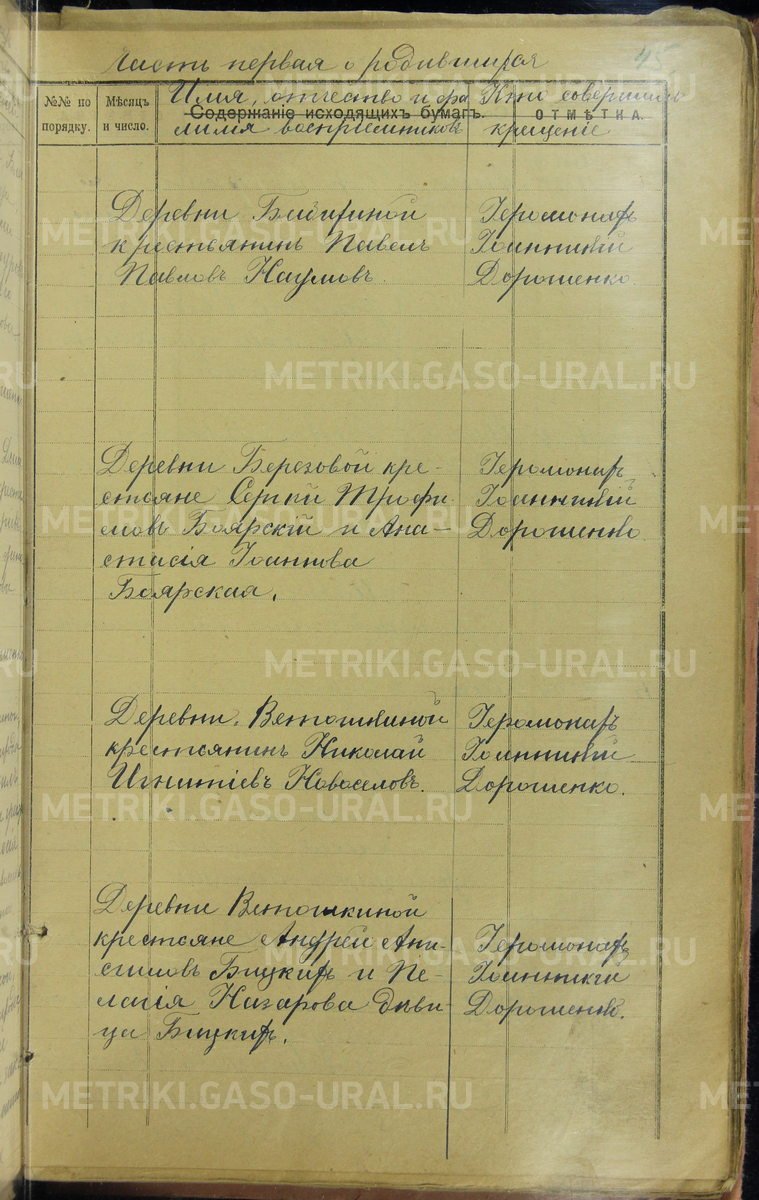 Часть первая о родившихся 45
№№ по порядку.
Мѣсяцъ и число.
Содержаніе исходящихъ бумагъ.
ОТМѢТКА.
Имя, отчество и фа
милія воспріемниковъ
Кто совершалъ
крещеніе
Деревни
крестьянинъ Павелъ
Павловъ Наумовъ.
Іеромонахъ
Іоанникій
Дорошенко.
Деревни Березовой кре-
стьяне Сергій Трофи
мовъ Боярскій и Ана-
стасія Іоаннова
Боярская.
Іеромонахъ
Іоанникій
Дорошенко.
Деревни Ветошкиной
крестьянинъ Николай
Игнатіевъ Новоселовъ.
Іеромонахъ
Іоанникій
Дорошенко.
Деревни Ветошкиной
крестьяне Андрей Ани-
симовъ Бицкихъ и Пе-
лагія Назарова дѣви-
ца Бицкихъ.
Іеромонахъ
Іоанникій
Дорошенко.
METRIKI.GASO-URAL.RU